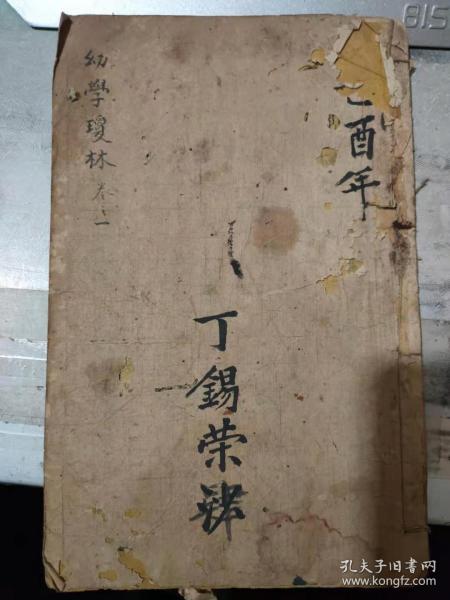 酉年
幼學瓊林 卷之一
丁錫荣肄
815
孔夫子旧书网
www.kongfz.com